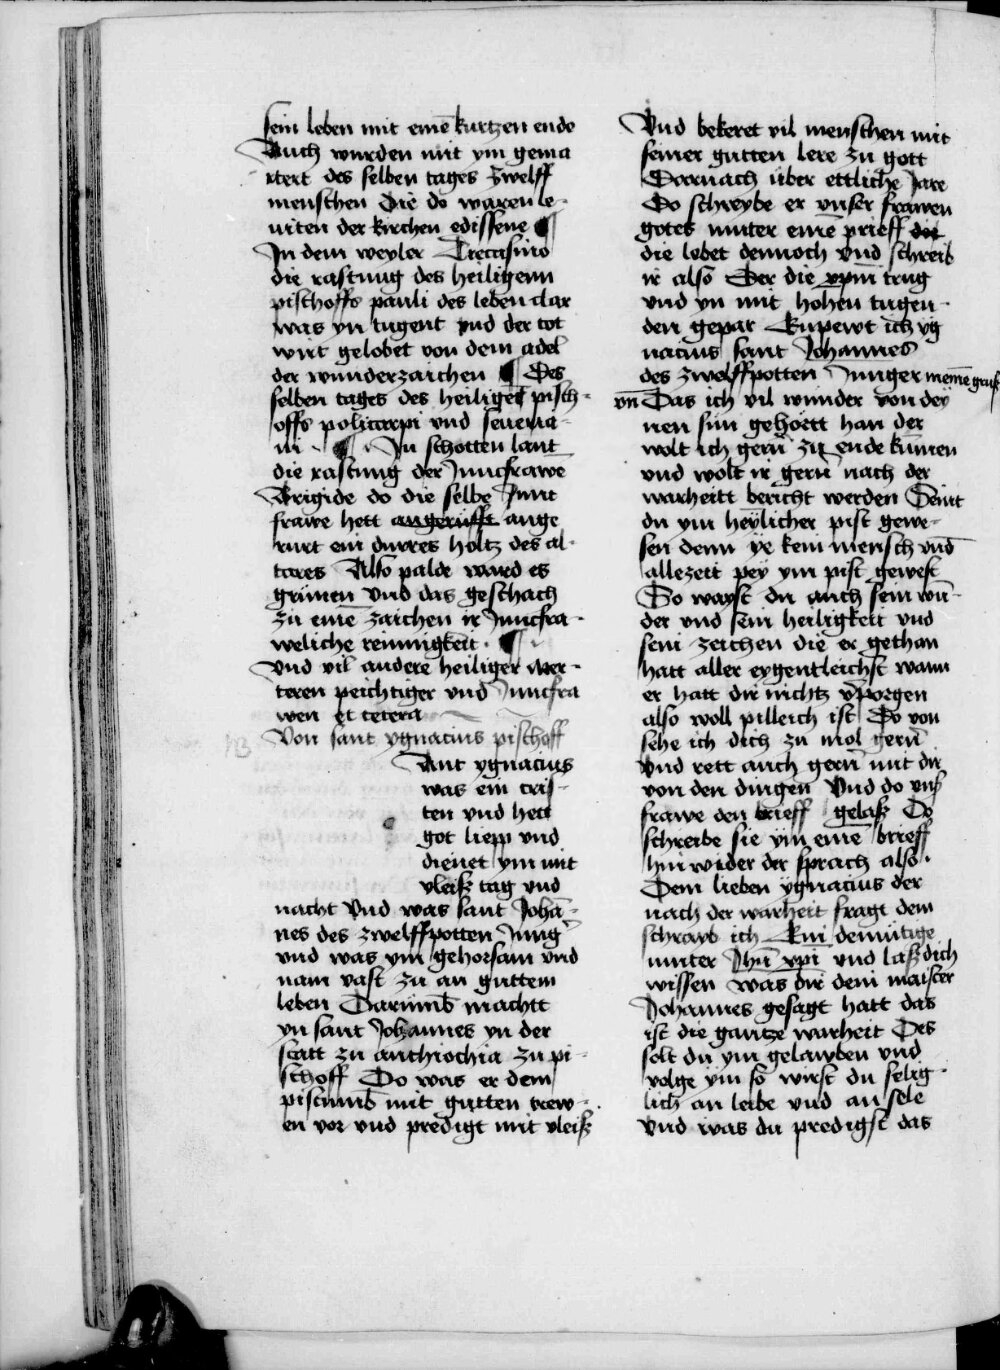 sein leben mit einē kurtzen ende
Auch wurden mit ym gema
rtert des selben tages zwelff
menschen Die do waren le-
uiten der kirchen edissene ¶
In dem weyler Treccasino
die rastung des heiligenn
pischoffs pauli des leben clar
was yn tugent vnd der tot
wirt gelobet von dem adel
der wunderzaichen ¶ Des
selben tages des heiliges pisch-
offs policarpi vnd seueria-
ni · ¶ · In schotten lant
die rastung der Junckfrawē
Brigide do die selbe Junc
frawe hett angerüfft ange
rurt ein durres holtz des al-
tares Also palde ward es
grünen vnd das geschach
zu einē zaichen ir Junckfra-
weliche reinnigkeit · ¶ ·
vnd vil andere heiliger Mer-
teren peichtiger vnd Junckfra
wen et cetera
Von sant ygnacius pischoff
Ant ygnacius
was ein cris-
ten vnd hett
got liepp vnd
dienet ym mit
vleisz tag vnd
nacht Vnd was sant Johā-
nes des zwelffpotten Jung'
vnd was ym gehorsam vnd
nam vast zu an guttem
leben Darumb machtt
yn sant Johannes yn der
statt zu anthiochia zu pi-
schoff Do was er dem
pistumb mit gutten trew-
en vor vnd predigt mit vleisz
Vnd bekeret vil menschen mit
seiner gutten lere zu gott
Dornach über ettliche Jare
Do schreybe er vnser frawen
gotes muter einē prieff die
die lebet dennoch vnd schreib
ir also Der die xpm trug
vnd yn mit hohen tugen-
den gepar Enpewt ich yg
nacius sant Johannes
des zwelffpotten Junger meinē grusz
vn̄ Das ich vil wunder von dey
nen sün gehortt han der
wolt ich gern̄ zu ende kumen
vnd wolt ir gern̄ nach der
warheitt bericht werden Seint
du ym heylicher pist gewe-
sen denn ye kein mensch vnd
allezeit pey ym pist gewest
So wayst du auch sein wū-
der vnd sein heiligkeit vnd
sein zeichen die er gethan
hatt aller eygentleichst wann
er hatt dir nichtz v̄porgen
also woll pilleich ist Do von
sehe ich dich zu mol gern̄
vnd rett auch gern̄ mit dir
von den dingen Vnd do vns
frawe den brieff gelasz Do
schreibe sie ym einē brieff
hin wider der sprach also ·
Dem lieben ygnacius der
nach der warheit fragt dem
schreyb ich Ein demütige
muter Jhū xpi vnd lasz dich
wissen was dir dein maister
Johannes gesagt hatt das
ist die gantze warheit Des
solt du ym gelawben vnd
volge ym so wirst du selig-
lich an leibe vnd an sele
Vnd was du predigst das